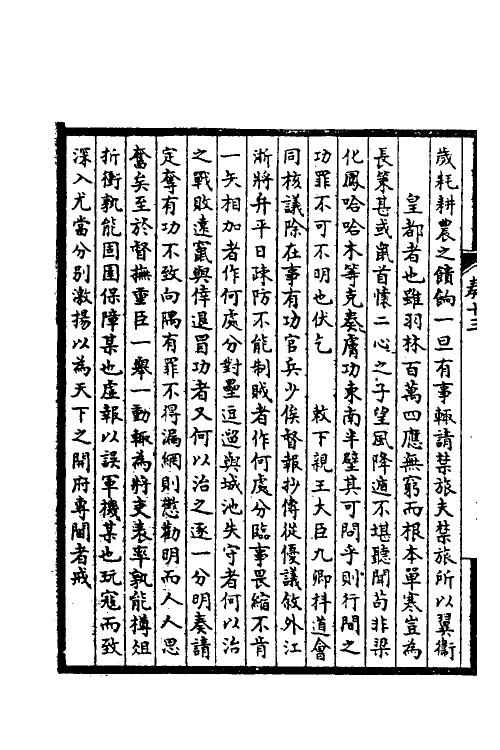 歲耗耕農之饋餉一旦有事輒請禁旅夫禁旅所以翼衞
皇都者也雖羽林百萬四應無窮而根本單寒豈為
長策甚或鼠首懷二心之子望風降遁不堪聽聞苟非梁
化鳳哈哈木等克奏膚功東南半壁其可問乎則行間之
功罪不可不明也伏乞 敕下親王大臣九卿科道會
同核議除在事有功官兵少俟督報抄傳從優議敘外江
浙將弁平日疎防不能制賊者作何處分臨事畏縮不肯
一矢相加者作何處分對壘逗遛與城池失守者何以治
之戰敗遠竄與倖退冒功者又何以治之逐一分明奏請
定奪有功不致向隅有罪不得漏網則懲勸明而人人思
奮矣至於督撫重臣一舉一動輒為將吏表率孰能樽俎
折衝孰能固圉保障某也虛報以誤軍機某也玩寇而致
深入尤當分别激揚以為天下之開府專閫者戒
奏十三